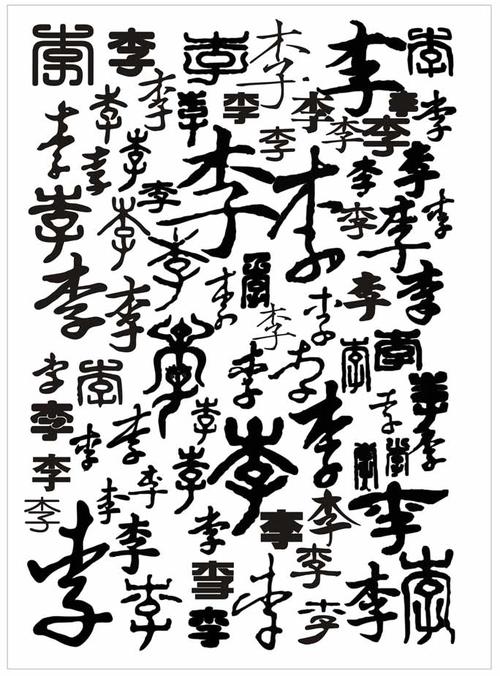 李李李李李李
李李李李李李李李李李
李李李李李李李
李李李李李李
李李李李李李李李李
李李李李李李李
李李李李李李李李
李李李李李李
李李李李李李李
李李李李李李李
李李